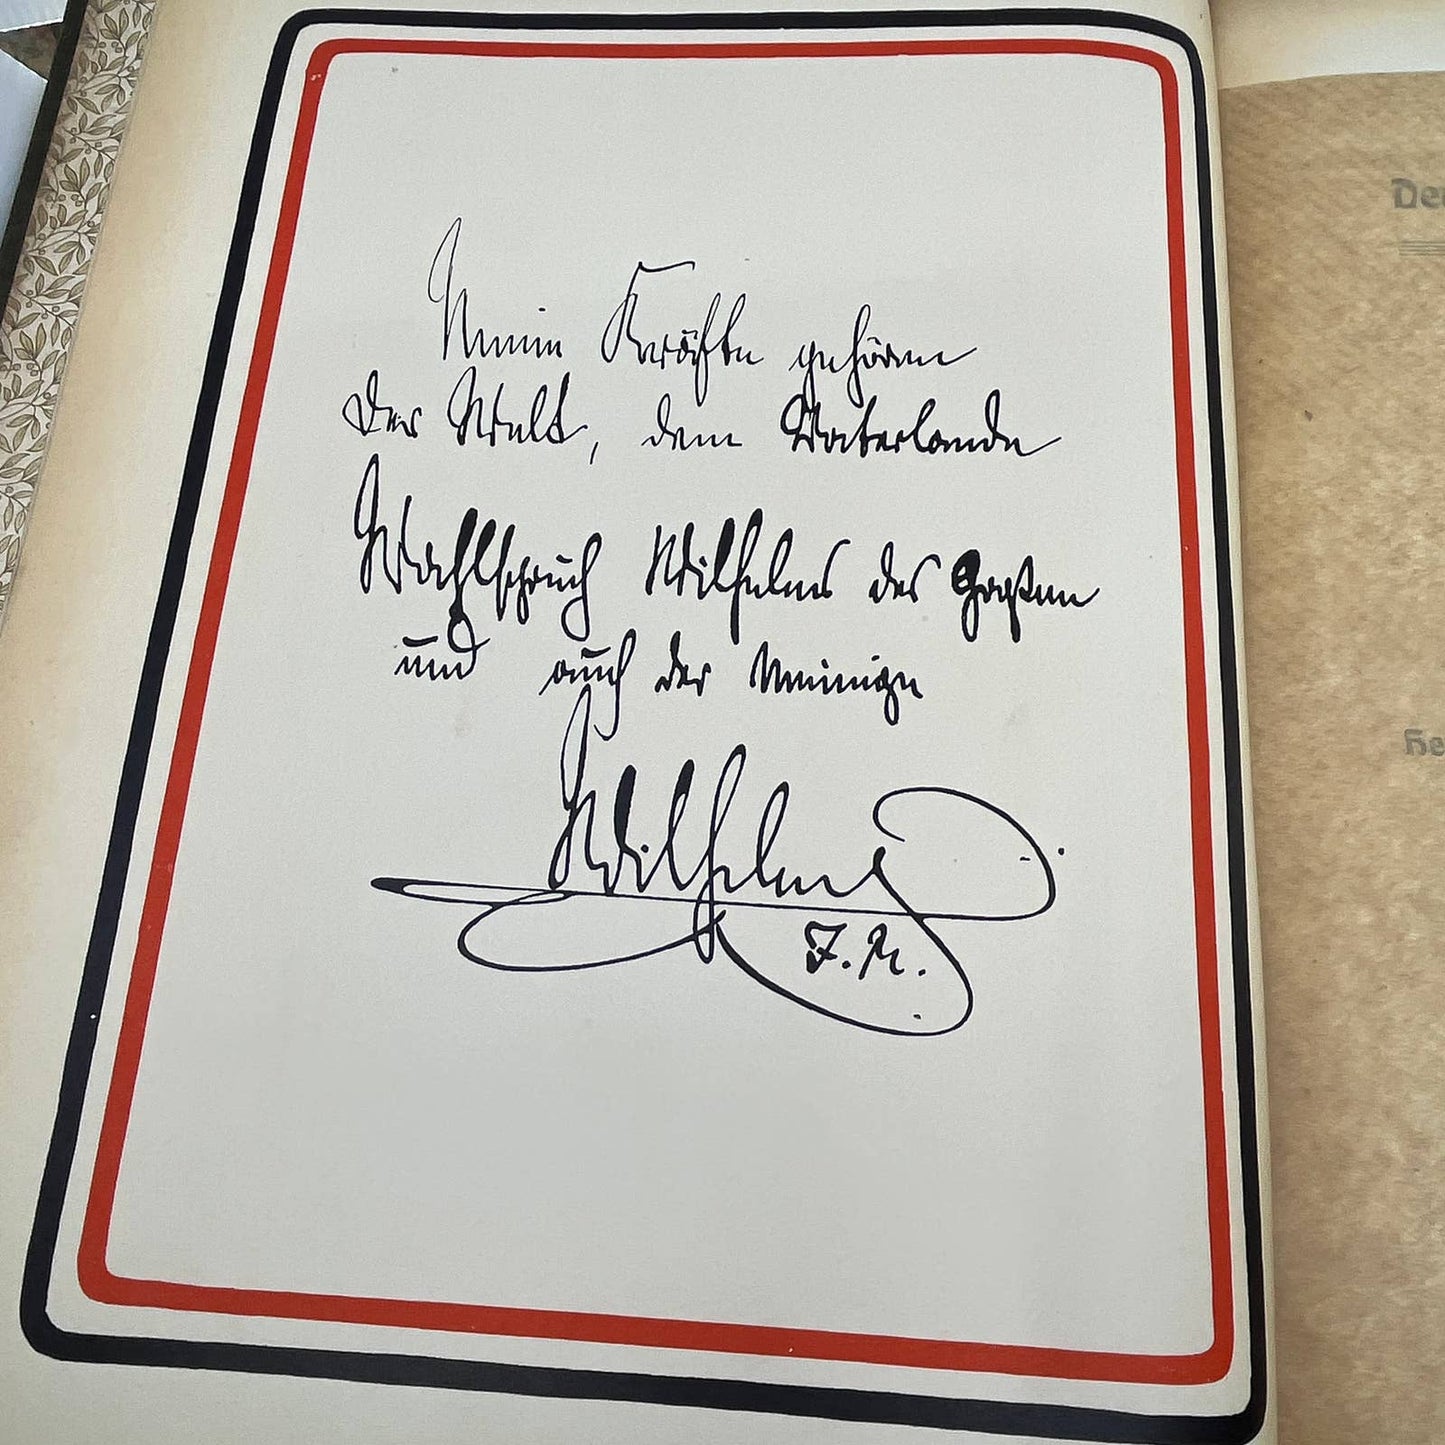 Meine Kräfte gehören
der Welt, dem Vaterlande
Wahlspruch Wilhelms des Großen
und auch der Meinige
Wilhelm
I. R.